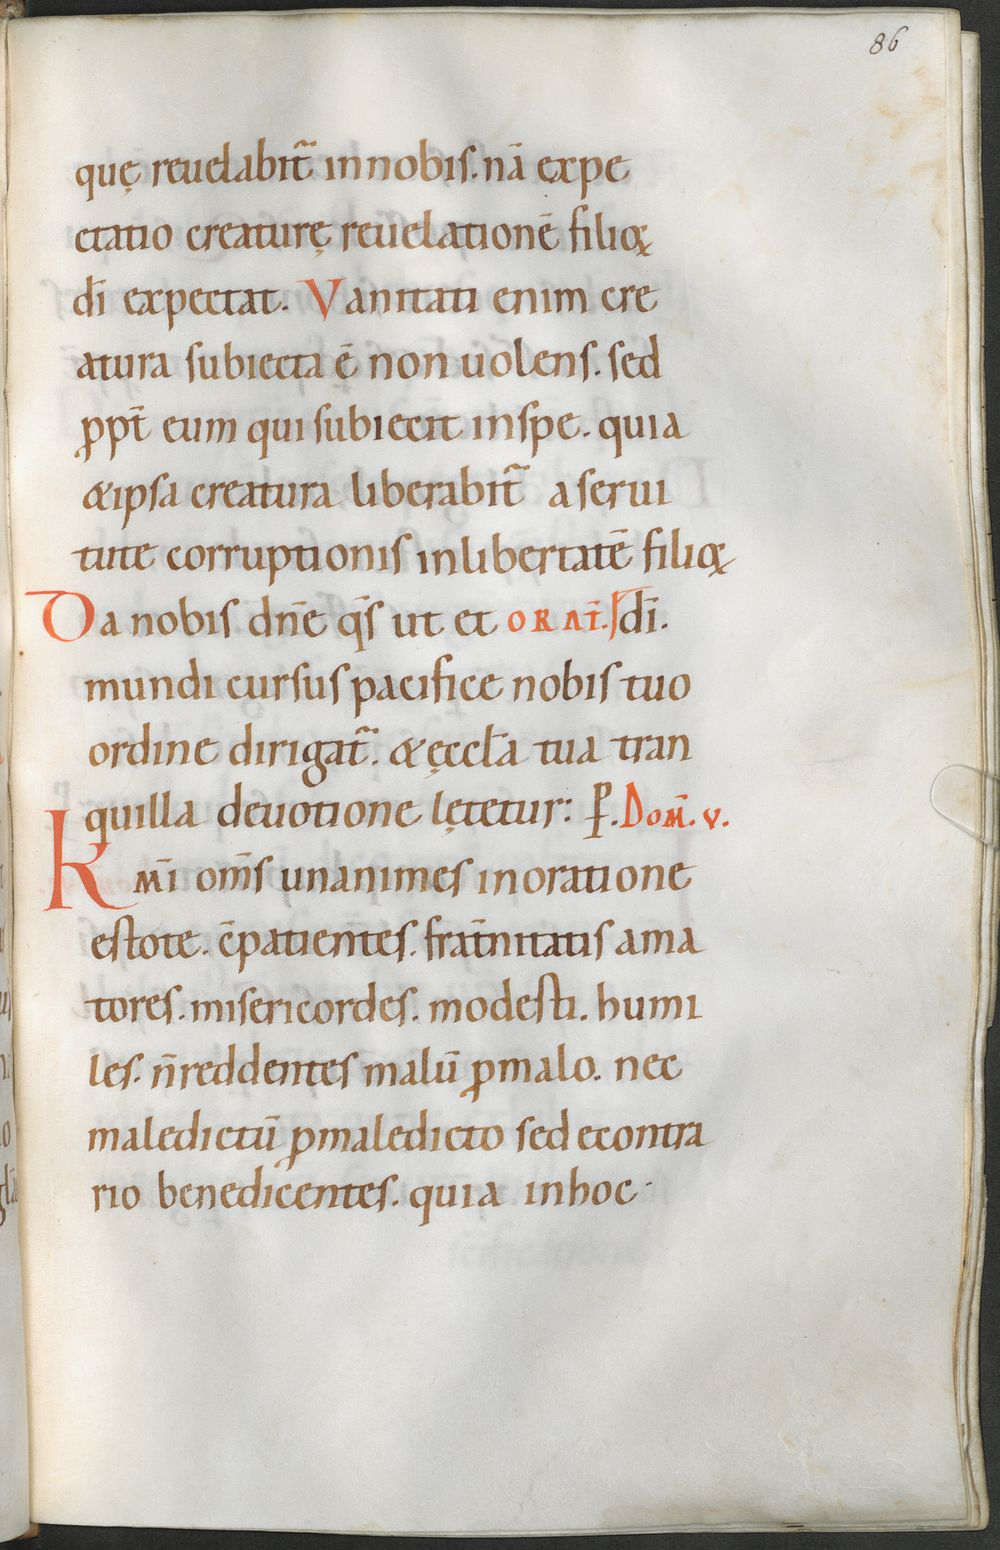 86
quę reuelabit̃ innobis. nā expe
ctatio creaturę reuelationē filioꝝ
dī expectat. Vanitati enim cre
atura subiecta ē non uolens. sed
ꝓpt̄ eum qui subiecit inspe. quia
&ipsa creatura liberabit̃ a serui
tute corruptionis inlibertatē filioꝝ
Da nobis dn̄e q̄s ut et ORAT̄. dī.
mundi cursus pacifice nobis tuo
ordine dirigat̃. & ęccl̄a tua tran
quilla deuotione lętetur: P. Dom̄. V.
Km̄i om̄s unanimes inoratione
estote. c̄patientes. frat̄nitatis ama
tores. misericordes. modesti. humi
les. n̄reddentes malū ꝓmalo. nec
maledictū ꝓmaledicto sed econtra
rio benedicentes. quia inhoc